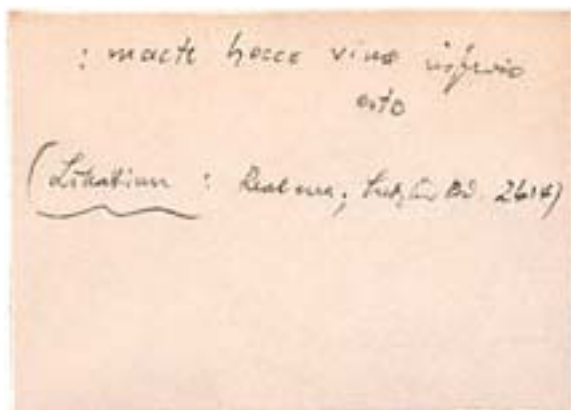 : macte hocce vino inferio
esto
(Libation : Realenc, Bd. 2614)